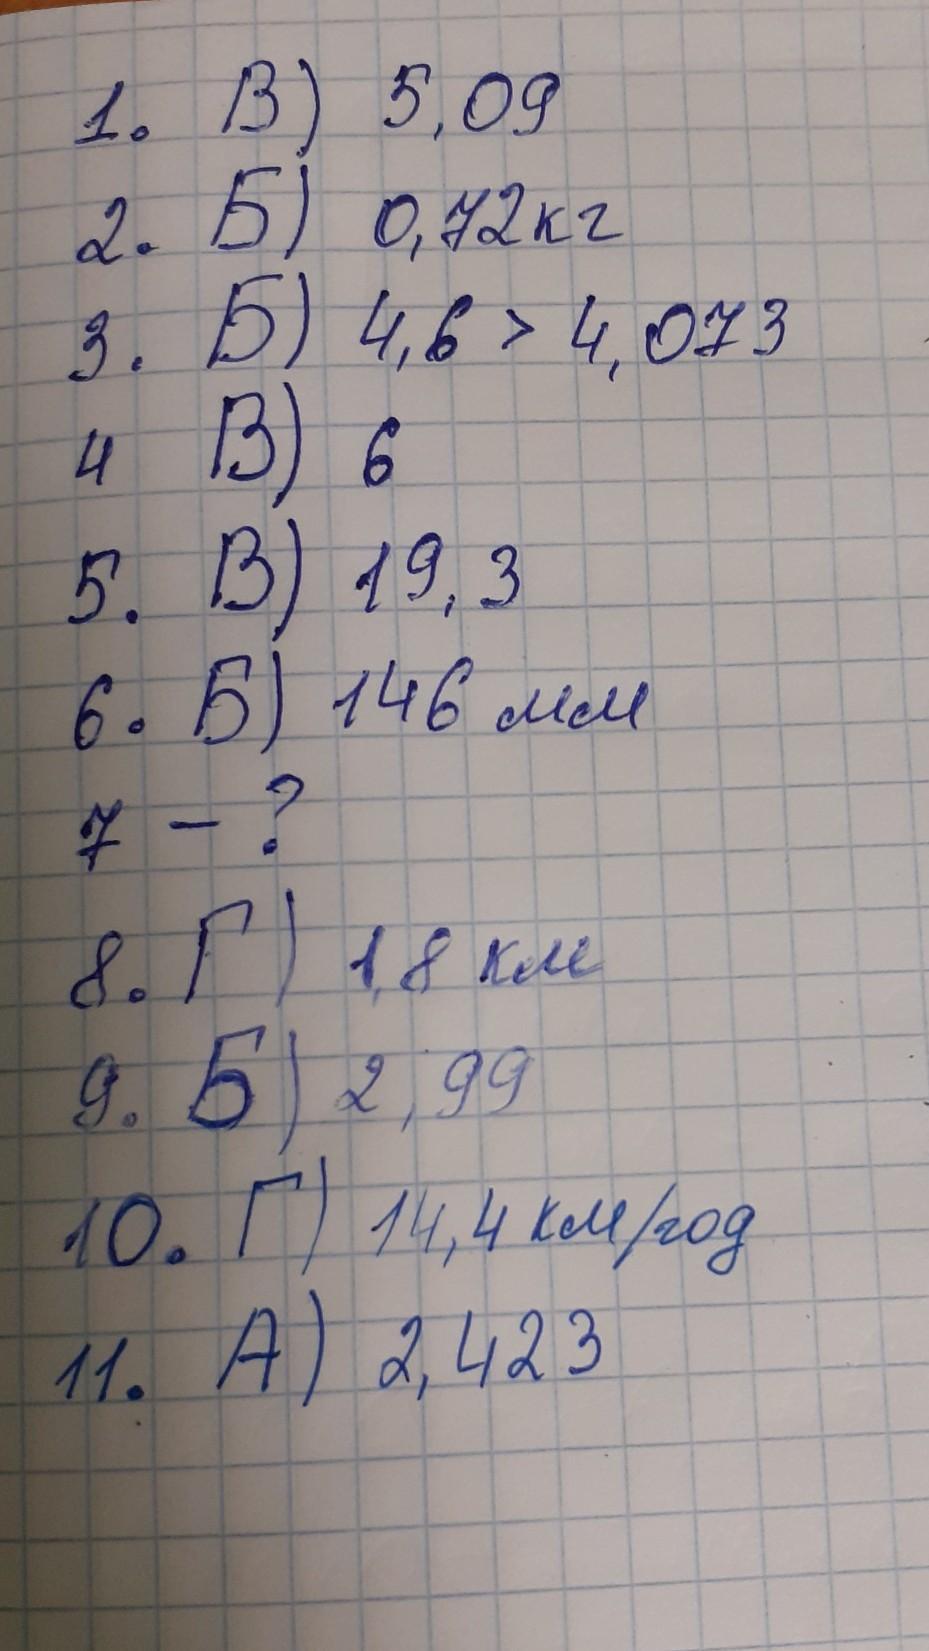 1. В) 5,09
2. Б) 0,72кг
3. Б) 4,6 > 4,073
4 В) 6
5. В) 19,3
6. Б) 146 мм
7 – ?
8. Г) 1,8 км
9. Б) 2,99
10. Г) 14,4 км/год
11. А) 2,423